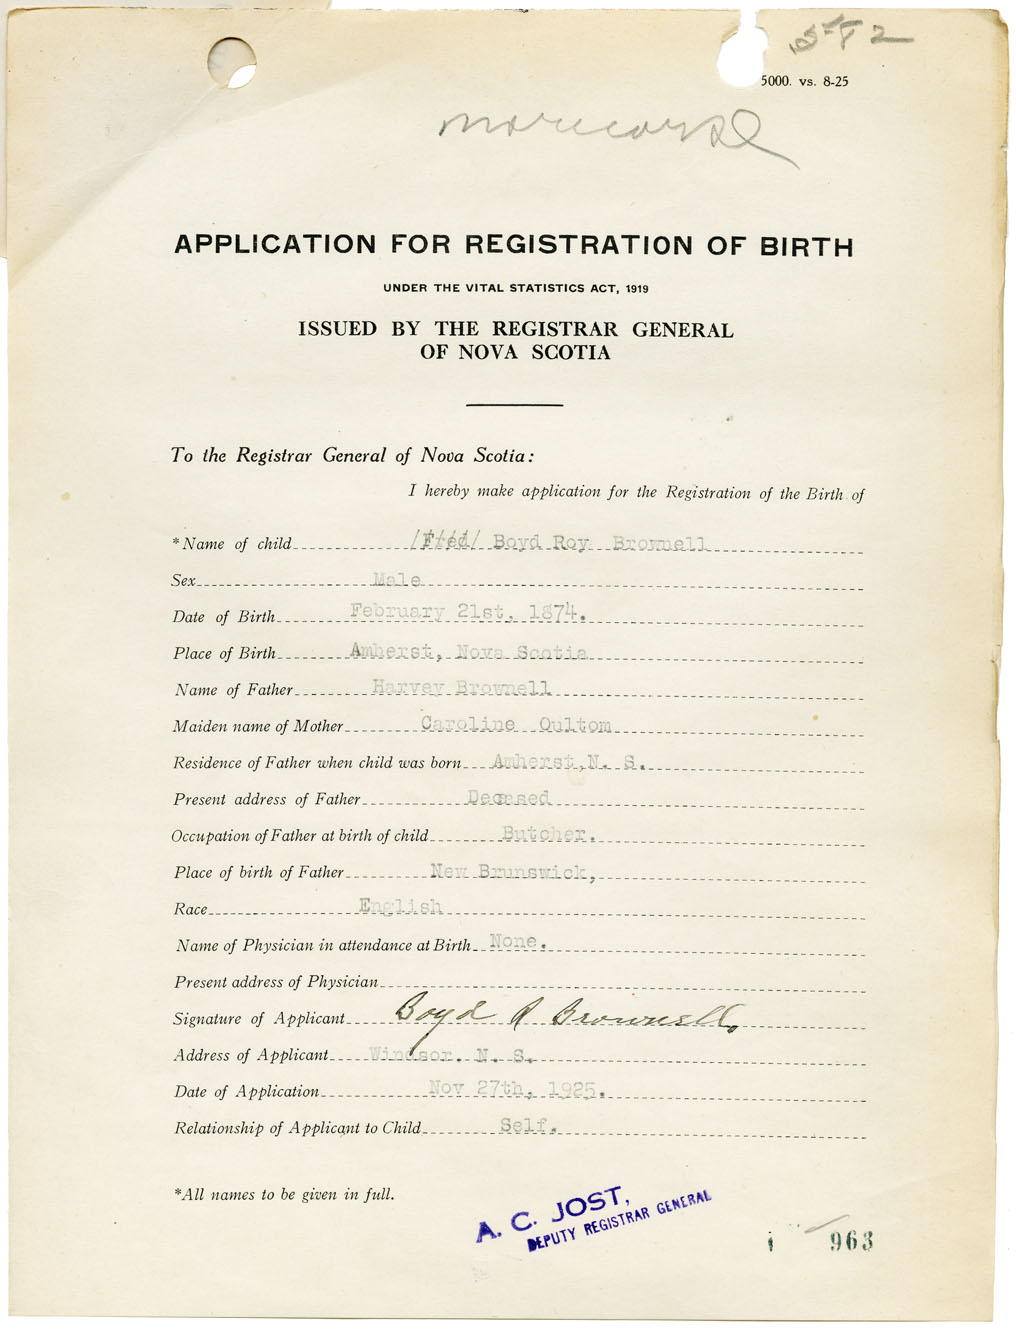 5000. vs. 8-25
APPLICATION FOR REGISTRATION OF BIRTH
UNDER THE VITAL STATISTICS ACT, 1919
ISSUED BY THE REGISTRAR GENERAL
OF NOVA SCOTIA
To the Registrar General of Nova Scotia:
I hereby make application for the Registration of the Birth of
*Name of child /Fred/ Boyd Roy Brownell
Sex Male
Date of Birth February 21st, 1874.
Place of Birth Amherst, Nova Scotia
Name of Father Harvey Brownell
Maiden name of Mother Caroline Oultom
Residence of Father when child was born Amherst, N. S.
Present address of Father Deceased
Occupation of Father at birth of child Butcher.
Place of birth of Father New Brunswick,
Race English
Name of Physician in attendance at Birth None.
Present address of Physician
Signature of Applicant Boyd R Brownell.
Address of Applicant Windsor. N. S.
Date of Application Nov 27th, 1925.
Relationship of Applicant to Child Self.
*All names to be given in full.
A. C. JOST,
DEPUTY REGISTRAR GENERAL
963